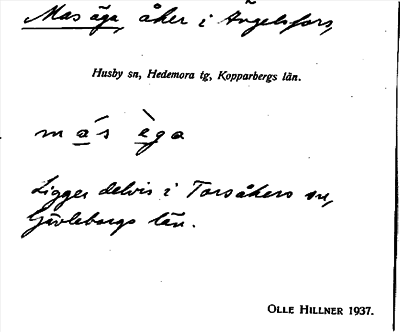 Mas äga, åker i Ängelsfors,
Husby sn, Hedemora tg, Kopparbergs län.
más èga
Ligger delvis i Torsåkers sn,
Gävleborgs län.
OLLE HILLNER 1937.